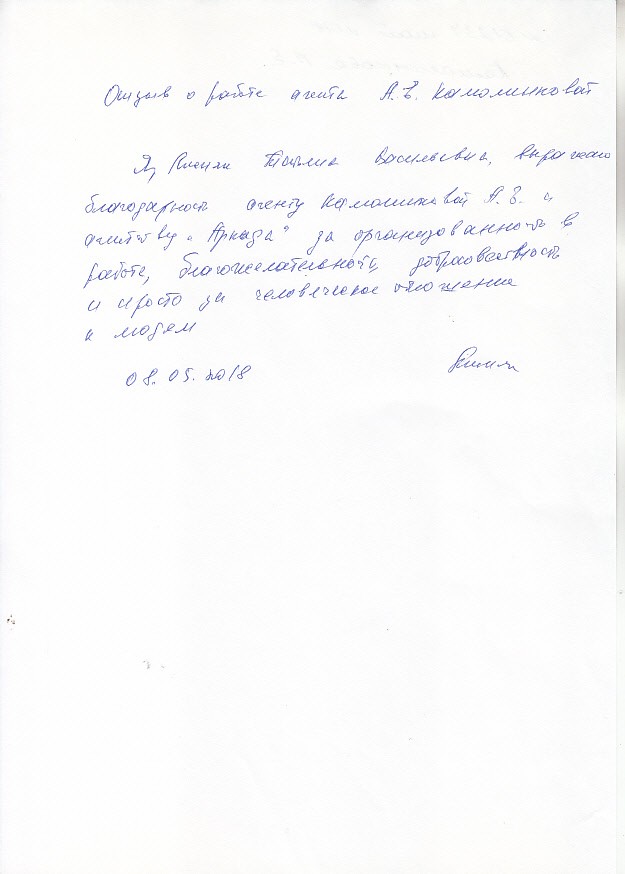 Отзыв о работе агента А.В. Камолинковой
Я, Татьяна Васильевна, выражаю
благодарность агенту Камолинковой А.В. и
агентству „Аркада" за организованность в
работе, благожелательность, добросовестность
и просто за человеческое отношение
к людям
08.05.2018